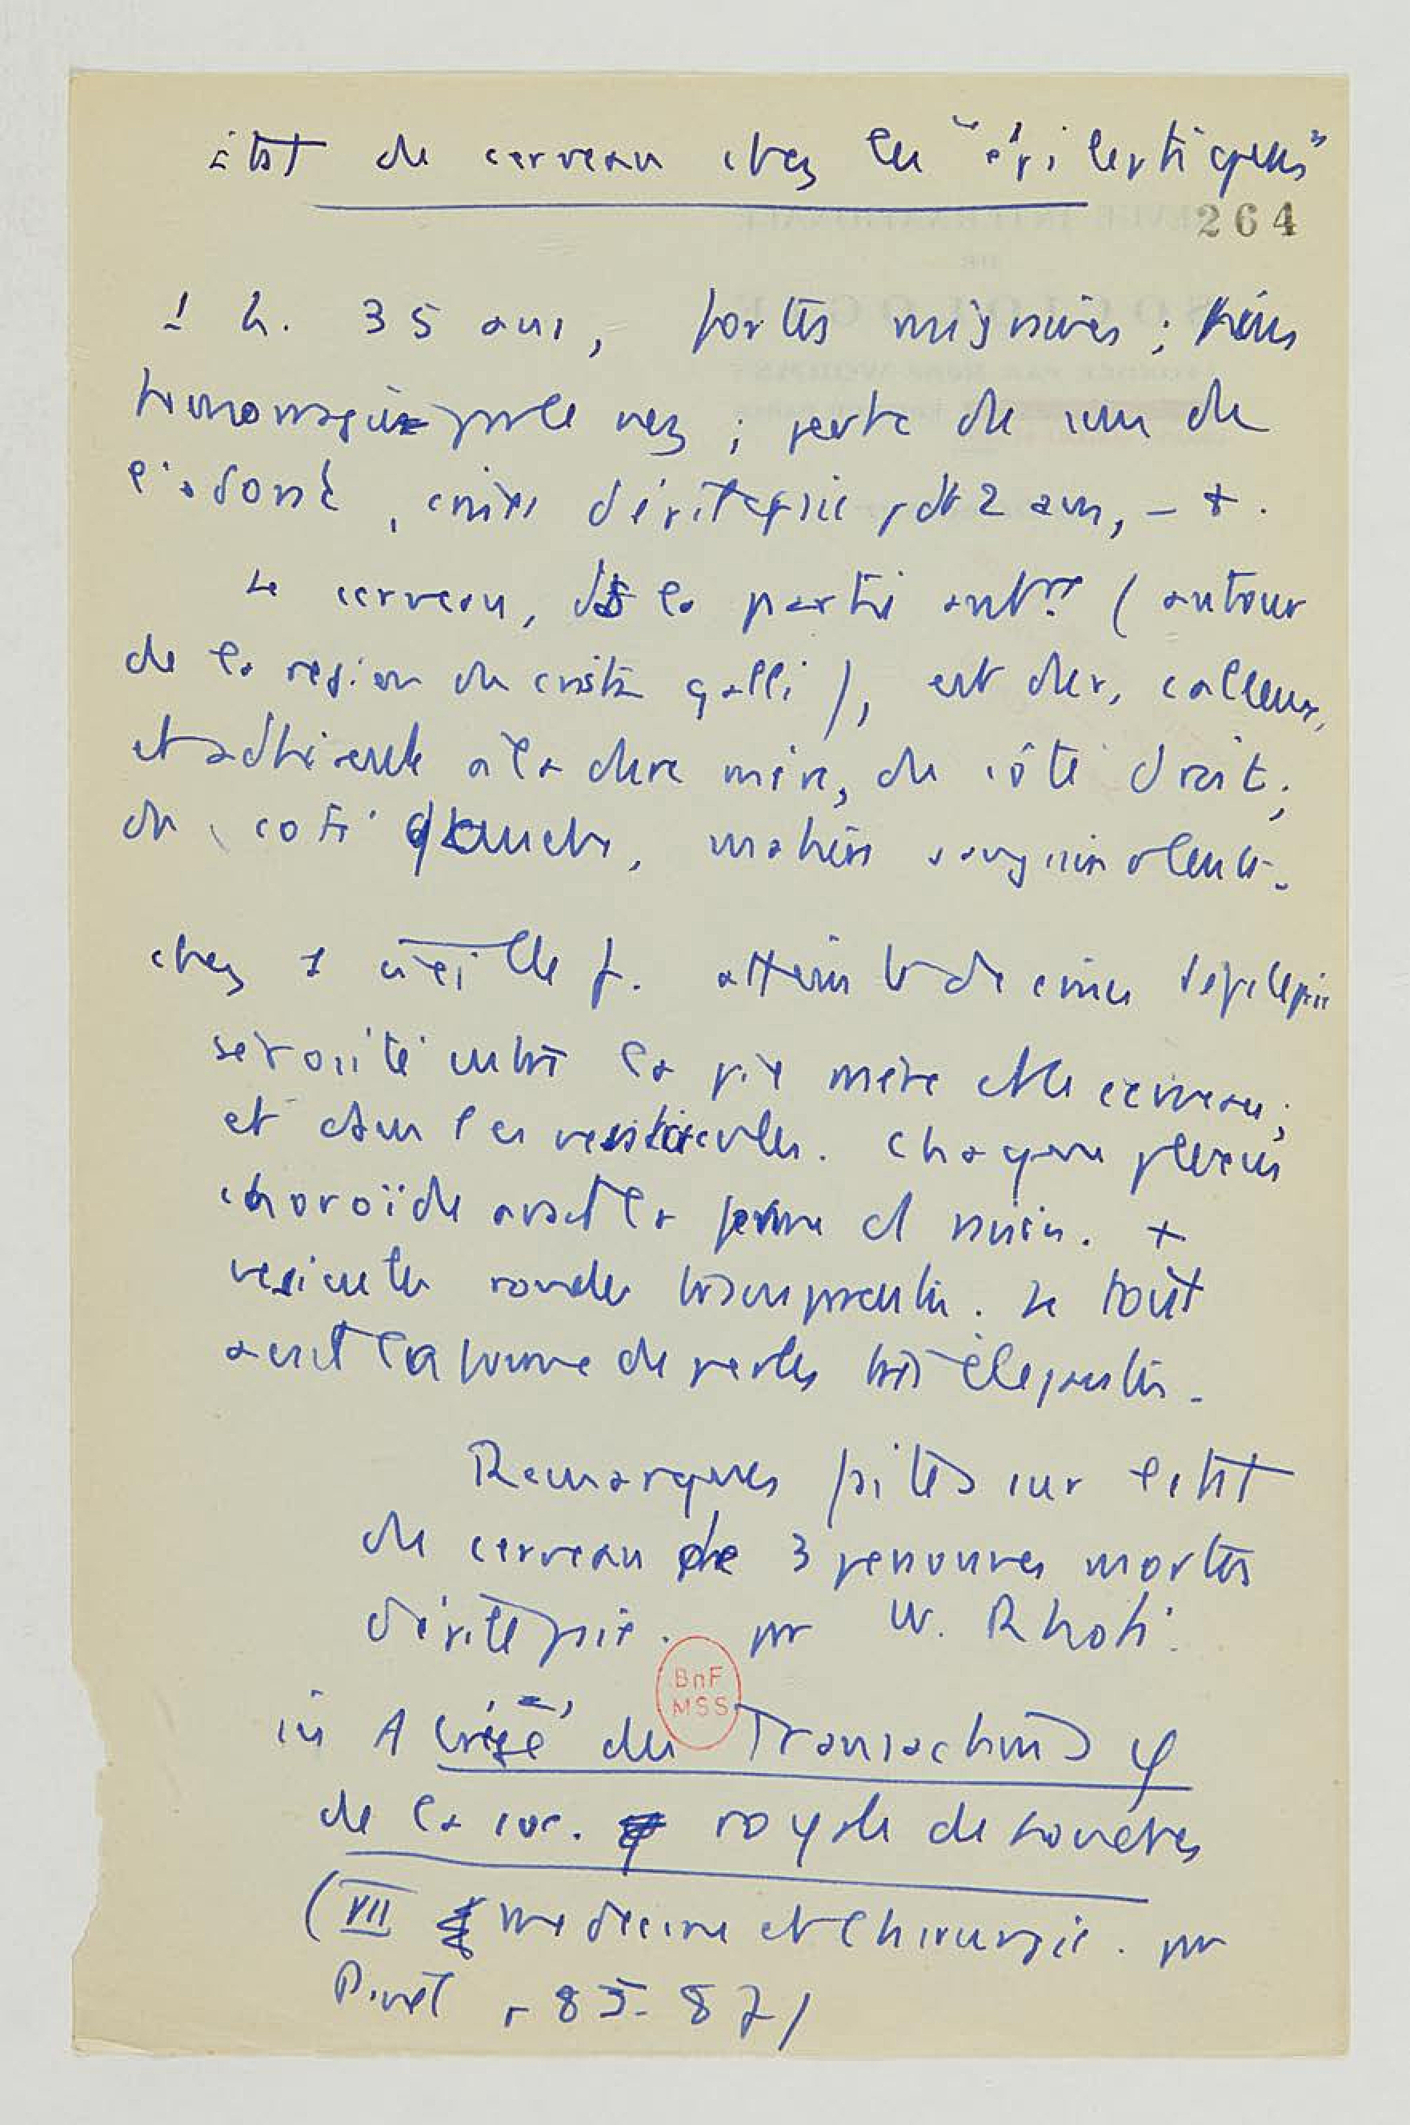 état du cerveau chez les "épileptiques"
264
1 h. 35 ans, fortes migraines ; puis
hémorragie par le nez ; perte du sens de
l'odorat, crises d'épilepsie pdt 2 ans, – †.
Le cerveau, ds la partie antre (autour
de la région du crista galli), est dur, calleux,
et adhérente à la dure mère, du côté droit ;
du côté gauche, matière sanguinolente.
chez 1 vieille f. atteinte de crises d'épilepsie
sérosité entre la pie mère et le cerveau ;
et dans les ventricules. Chaque plexus
choroïde avait la forme d
vésicules rondes transparentes. Le tout
avait la forme de perles très élégantes.
Remarques faites sur l'état
du cerveau de 3 personnes mortes
d'épilepsie. par W. Rhoti.
in Abrégé des Transactions φ
BnF
MSS
de la soc. royale de Londres
(VII médecine et chirurgie. par
Pinel p 85-87)